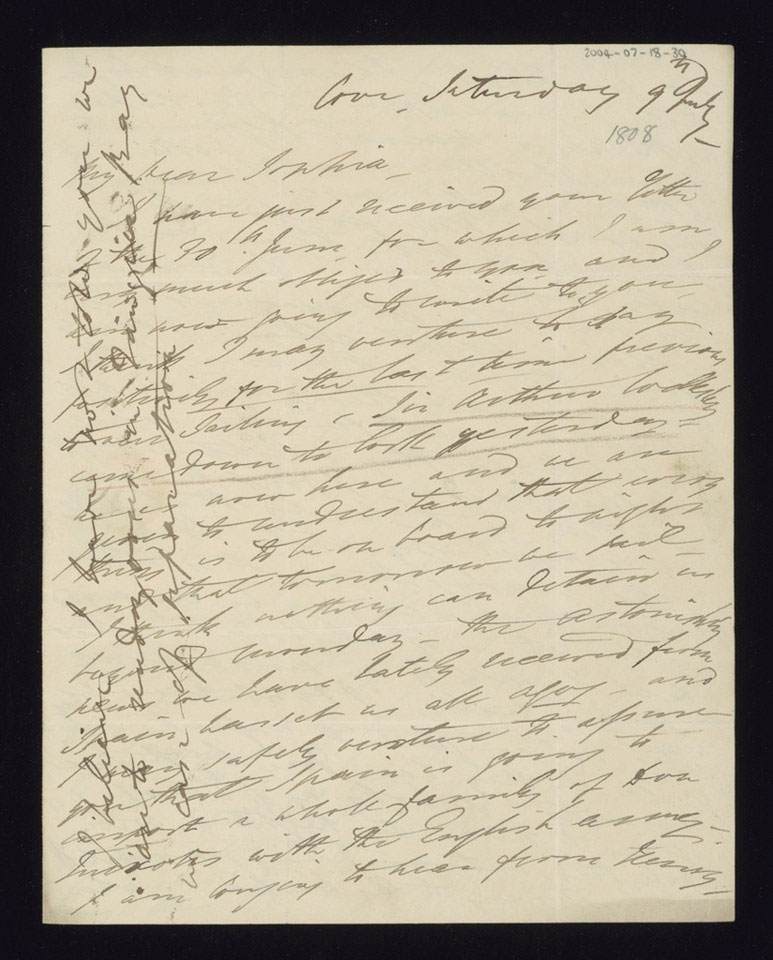 2004-07-18-30
Cove, Saturday 9th July
1808
My dear Sophia,
I have just received your letter
of the 30th June, for which I am
very much obliged to you, and I
am now going to write to you,
I think I may venture to say
positively for the last time previous
to our sailing, Sir Arthur Wellesley
came down to Cork yesterday
he is now here and we are
given to understand that every
thing is to be on board to night
and that tomorrow we sail
I think nothing can detain us
beyond Monday - the astonishing
news we have lately received from
Spain has set us all agog, and
I may safely venture to assure
you that Spain is going to
import a whole family of Don
with the English army,
I am longing to hear from Henry
I believe I have not told you we
are to rendezvous in Bay
case of separation